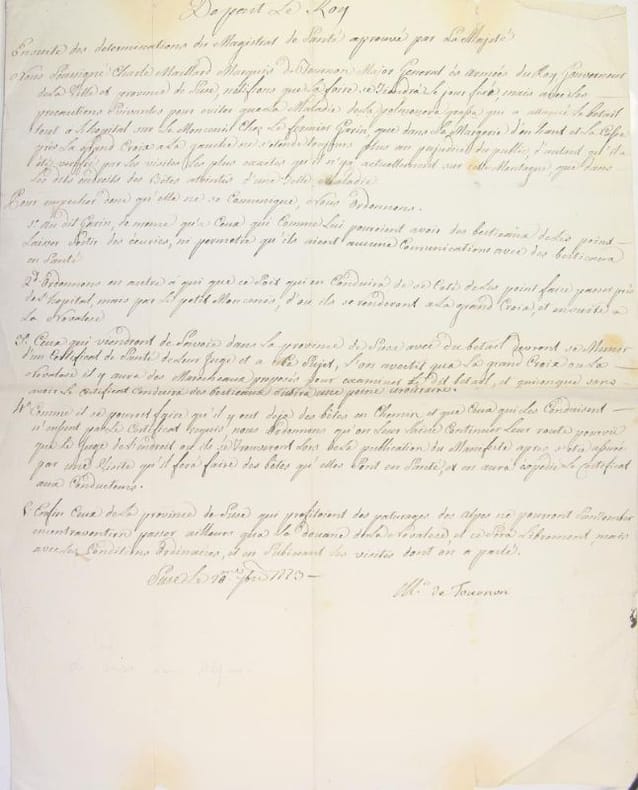 De part Le Roy
Ensuite des determinations du Magistrat de Santé aprouvée par Sa Majesté
Nous Soussigné Charle Maillard Marquis De Tournon Major General és armées du Roy, Gouverneur
de la Ville et province de Suse, notifions que la foire se tiendra le jour fixé, mais avec les
precautions Suivantes pour eviter que La Maladie de la qui a attaqué le betail
tant a L'hopital sur Le Moncenis Chez Le fermier Garin, que dans la Margerie d'en haut et La
près La grand Croix a La gauche ne s'etende toujours plus au prejudice du public, d'autant qu'il a
été verifié par les visites les plus exactes qu'il n'y a actuellement sur cette Montagne que dans
les dits endroits des Bêtes atteintes d'une Telle Maladie
Pour empecher donc qu'elle ne se Comunique, Nous Ordonnons.
1° Au dit Garin, de meme qu'a Ceux qui Comme Lui pourroient avoir des bestiaux de Les point
Laisser Sortir des écuries, ni permetre qu'ils aient aucune Comunications avec des bestiaux
en Santé
2d Ordonnons en outre à qui que ce soit qui en Conduira de ce Coté de Les point faire passer près
de L'hopital, mais par Le petit Moncenis, d'ou ils se rendront a La grand Croix, et ensuite a
La Novalese
3° Ceux qui viendront de Savoie dans la province de Suse avec du betail devront se Munir
d'un Certificat de Santé de Leur Juge et a ce Sujet, L'on avertit que La grand Croix ou La
Novalese il y aura des Marechaux preposés pour examiner le dit betail, et quiconque sans
avoir Le Certificat Conduira des bestiaux Subira une peine arbitraire.
4° Comme il se pourroit faire qu'il y eut deja des bêtes en Chemin, et que Ceux qui Les Conduisent
n'eussent pas Le Certificat requis nous Ordonnons qu'on Leur Laisse Continuer Leur route pourvû
que Le Juge de L'endroit ou ils se trouveront Lors de La publication du Manifeste après s'etre assuré
par une Visite qu'il fera faire des bêtes qu'elles Sont en Santé, et en aura expedié Le Certificat
aux Conducteurs.
5° Enfin Ceux de La province de Suse qui profitoient des paturages des alpes ne pourront Sans tomber
en contravention passer ailleurs qu'a La Douane de La Novalese, et ce Sera Librement, mais
avec Les Conditions Ordinaires, et en Subissant les visites dont on a parlé.
Suse Le 7bre 1773
de Tournon